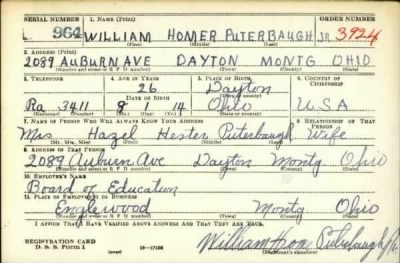 SERIAL NUMBER 1. NAME (Print) ORDER NUMBER
964 WILLIAM HOMER PUTERBAUGH JR. 3924
(First) (Middle) (Last)
2. ADDRESS (Print)
2089 AUBURN AVE DAYTON MONTG OHIO
(Number and street or R. F. D. number) (Town) (County) (State)
3. TELEPHONE 4. AGE IN YEARS 5. PLACE OF BIRTH 6. COUNTRY OF CITIZENSHIP
26 Dayton
DATE OF BIRTH
Ra 3411 9 1 14 Ohio U.S.A
7. NAME OF PERSON WHO WILL ALWAYS KNOW YOUR ADDRESS 8. RELATIONSHIP OF THAT PERSON
Mrs Hazel Hester Puterbaugh Wife
(Mr., Mrs., Miss) (First) (Middle) (Last)
9. ADDRESS OF THAT PERSON
2089 Auburn Ave Dayton Montg Ohio
(Number and street or R. F. D. number) (Town) (County) (State)
10. EMPLOYER'S NAME
Board of Education
11. PLACE OF EMPLOYMENT OR BUSINESS
Englewood Montg Ohio
(Number and street or R. F. D. number) (Town) (County) (State)
I AFFIRM THAT I HAVE VERIFIED ABOVE ANSWERS AND THAT THEY ARE TRUE.
REGISTRATION CARD
D. S. S. Form 1 William Homer Puterbaugh Jr.
(Registrant's signature)